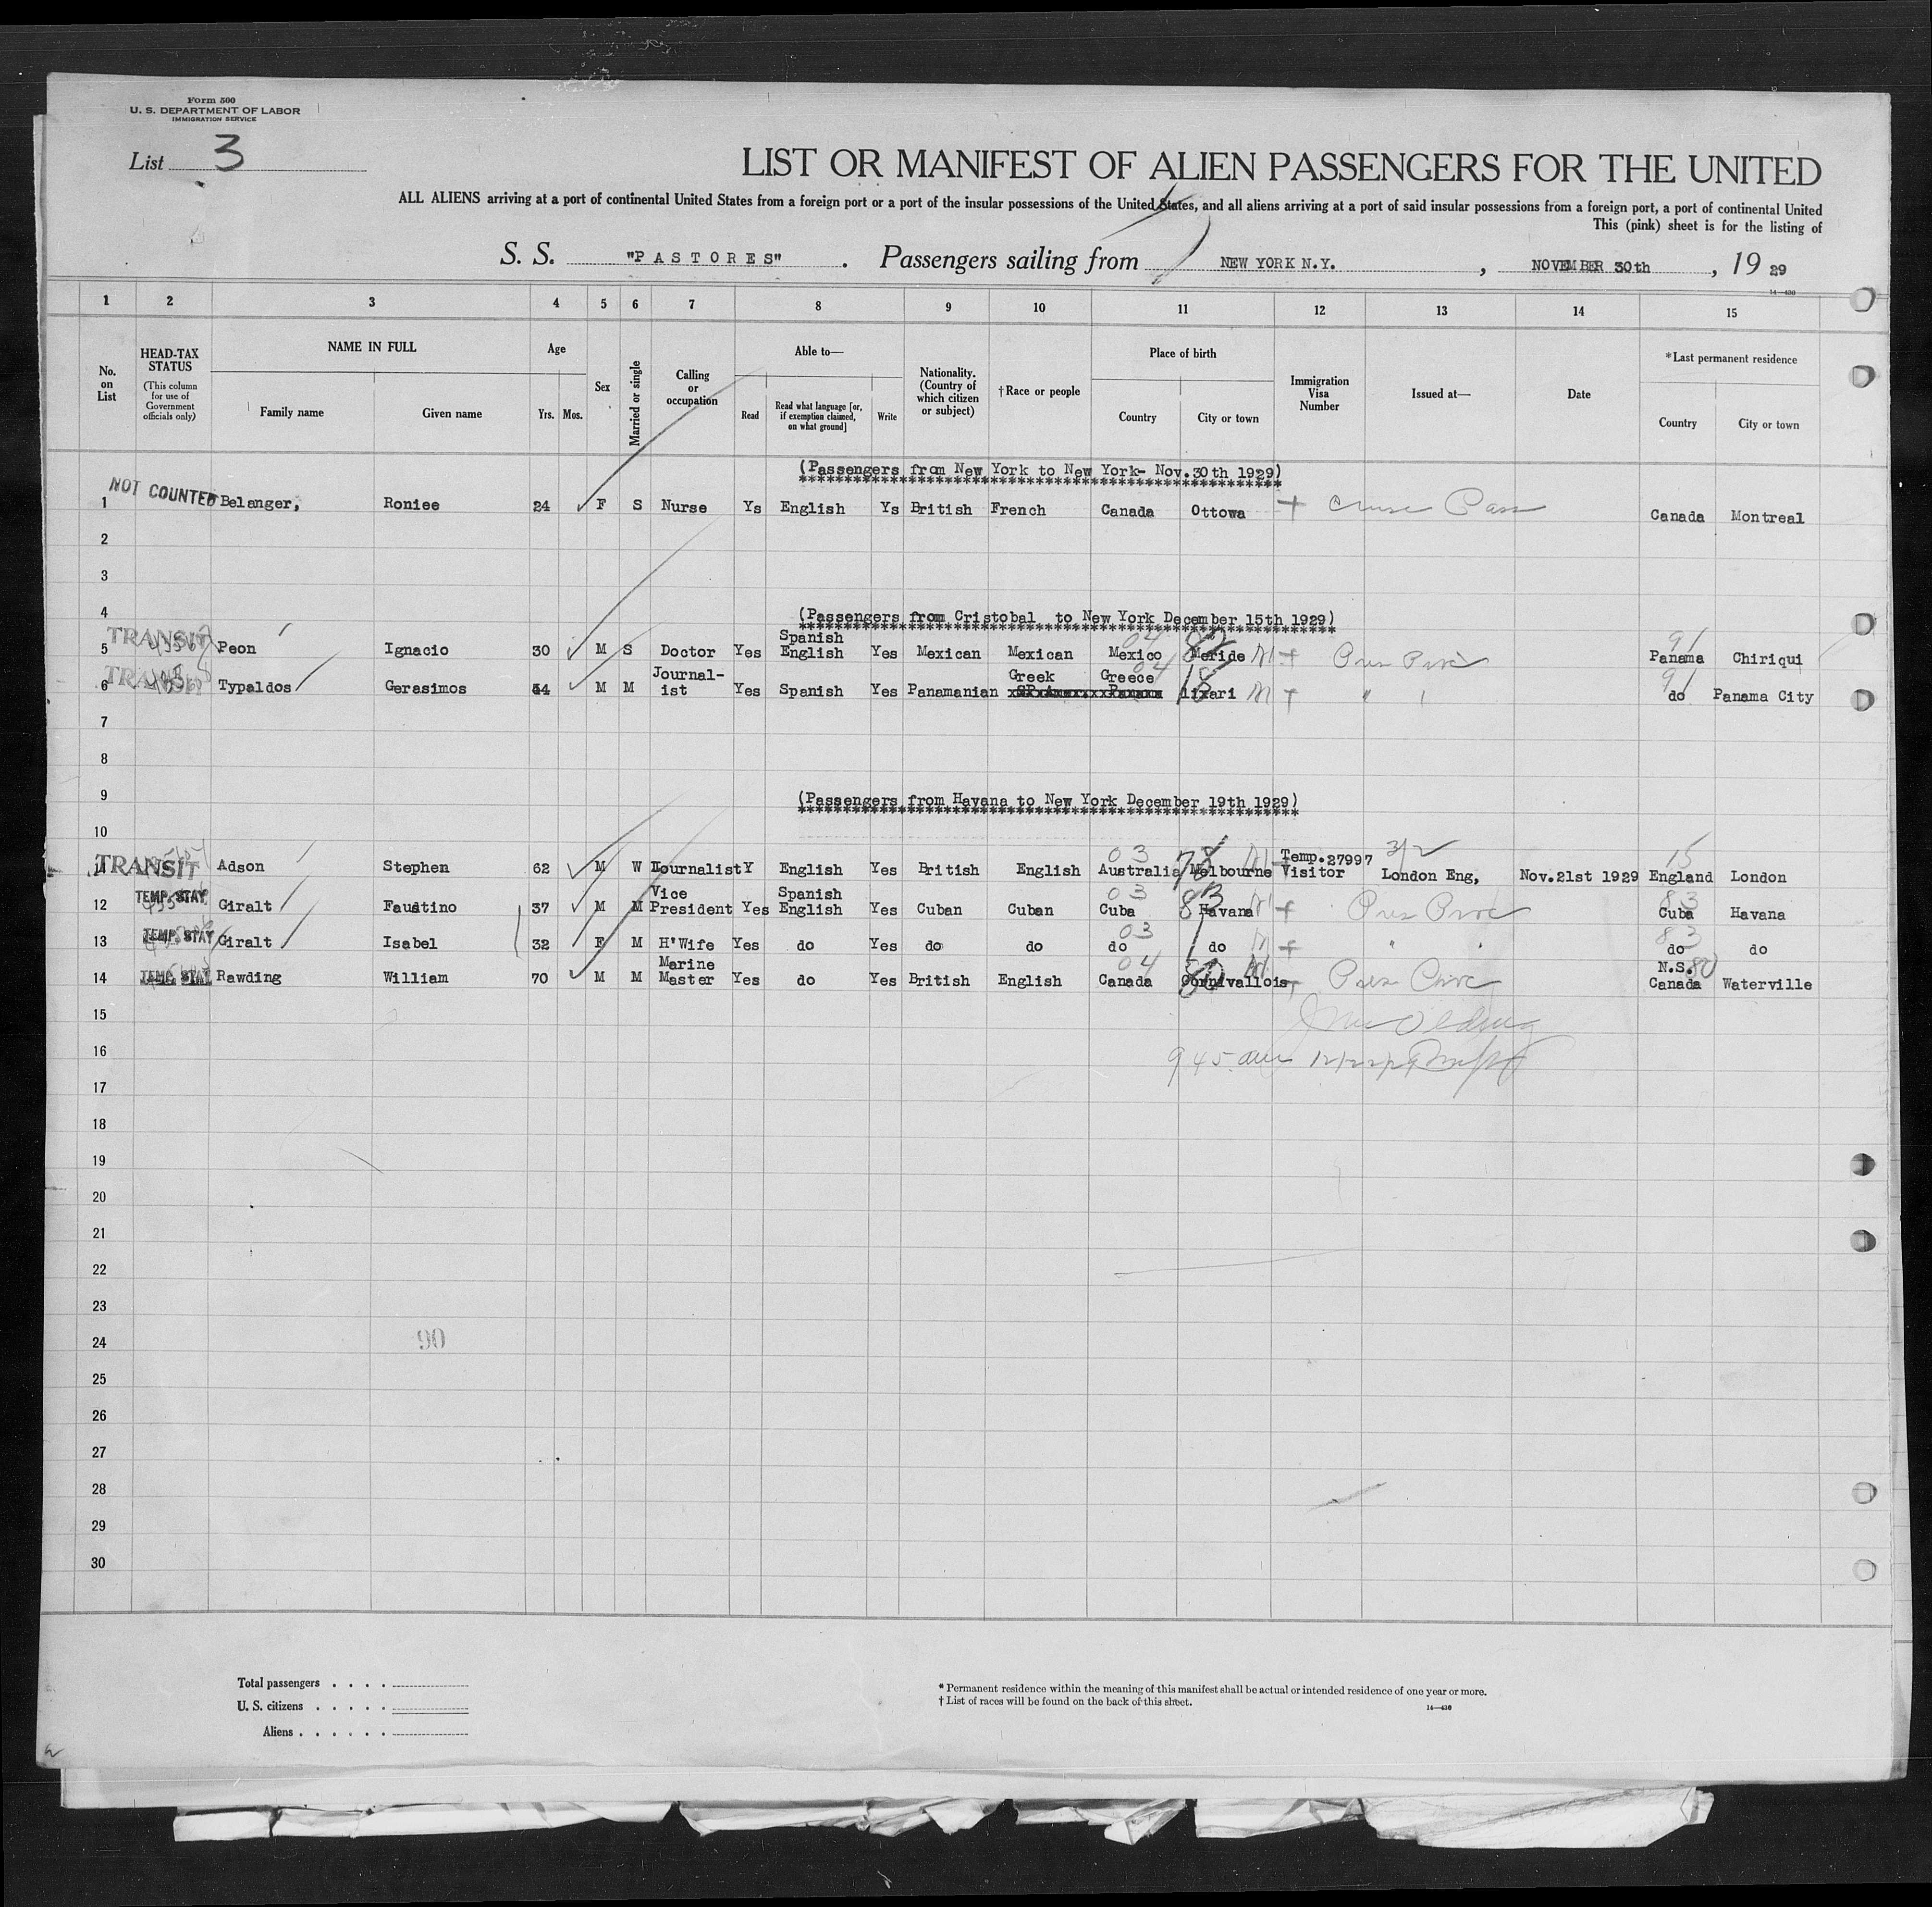 Form 500
U. S. DEPARTMENT OF LABOR
IMMIGRATION SERVICE
List 3
LIST OR MANIFEST OF ALIEN PASSENGERS FOR THE UNITED
ALL ALIENS arriving at a port of continental United States from a foreign port or a port of the insular possessions of the United States, and all aliens arriving at a port of said insular possessions from a foreign port, a port of continental United
This (pink) sheet is for the listing of
S. S. "PASTORES" . Passengers sailing from NEW YORK N.Y. , NOVEMBER 30th , 19 29
14—430
1 2 3 4 5 6 7 8 9 10 11 12 13 14 15
No. on List
HEAD-TAX STATUS (This column for use of Government officials only)
NAME IN FULL
Family name Given name
Age
Yrs. Mos.
Sex
Married or single
Calling or occupation
Able to—
Read Read what language [or, if exemption claimed, on what ground] Write
Nationality. (Country of which citizen or subject)
†Race or people
Place of birth
Country City or town
Immigration Visa Number
Issued at—
Date
*Last permanent residence
Country City or town
(Passengers from New York to New York- Nov.30th 1929)
1 NOT COUNTED Belanger, Roniee 24 F S Nurse Ys English Ys British French Canada Ottowa Cruise Pass Canada Montreal
2
3
4
(Passengers from Cristobal to New York December 15th 1929)
5 TRANSIT Peon Ignacio 30 M S Doctor Yes Spanish English Yes Mexican Mexican 04 Mexico Meride 91 Panama Chiriqui
6 TRANSIT Typaldos Gerasimos 54 M M Journal-ist Yes Spanish Yes Panamanian Greek 04 Greece lixari " 91 do Panama City
7
8
9
(Passengers from Havana to New York December 19th 1929)
10
11 TRANSIT Adson Stephen 62 M W Journalist Y English Yes British English 03 Australia 78 Melbourne Temp. Visitor 27997 3/2 London Eng, Nov.21st 1929 15 England London
12 TEMP. STAY Giralt Faustino 37 M M Vice President Yes Spanish English Yes Cuban Cuban 03 Cuba 83 Havana 83 Cuba Havana
13 TEMP. STAY Giralt Isabel 32 F M H'Wife Yes do Yes do do 03 do do " " 83 do do
14 TEMP. STAY Rawding William 70 M M Marine Master Yes do Yes British English 04 Canada 80 Cornivallois N.S. 80 Canada Waterville
15
16
945 am 12/22/29
17
18
19
20
21
22
23
24 90
25
26
27
28
29
30
Total passengers . . . .
U. S. citizens . . . . .
Aliens . . . . . .
* Permanent residence within the meaning of this manifest shall be actual or intended residence of one year or more.
† List of races will be found on the back of this sheet.
14—430